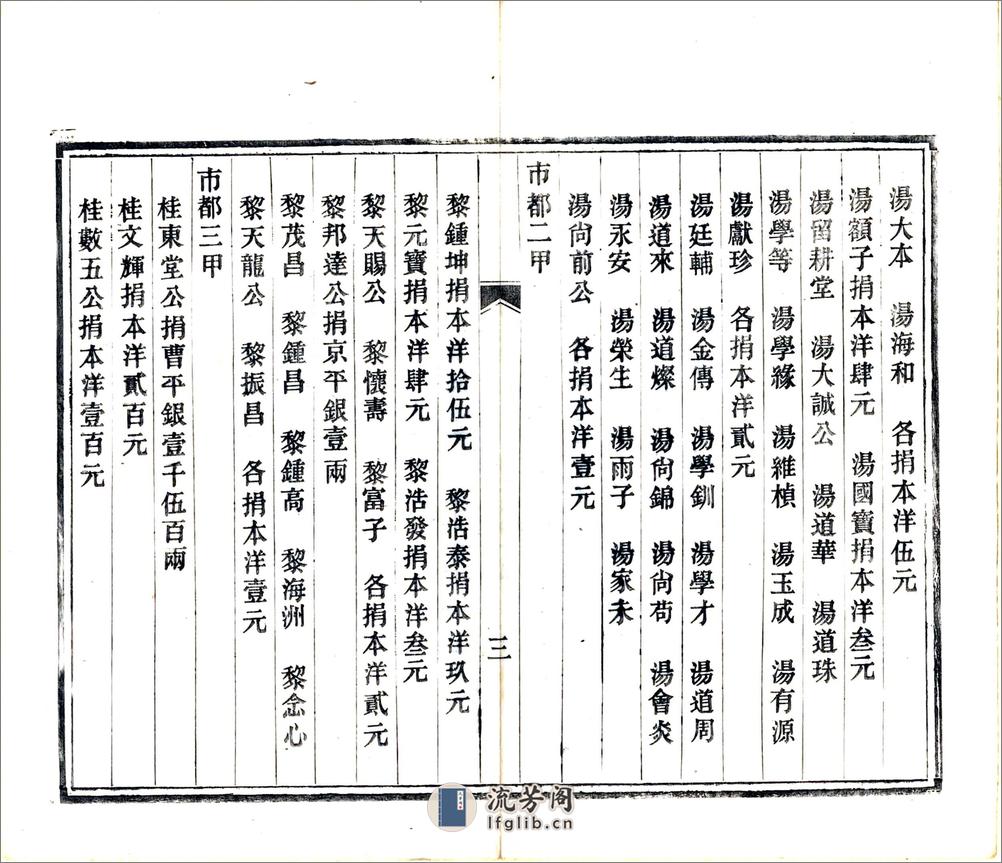 湯大本 湯海和 各捐本洋伍元
湯額子捐本洋肆元 湯國寶捐本洋叁元
湯留耕堂 湯大誠公 湯道華 湯道珠
湯學等 湯學緣 湯維楨 湯玉成 湯有源
湯獻珍 各捐本洋貳元
湯廷輔 湯金傳 湯學釧 湯學才 湯道周
湯道來 湯道燦 湯尙錦 湯尙苟 湯會炎
湯永安 湯榮生 湯雨子 湯家未
湯尙前公 各捐本洋壹元
市都二甲
三
黎鍾坤捐本洋拾伍元 黎浩泰捐本洋玖元
黎元寶捐本洋肆元 黎浩發捐本洋叁元
黎天賜公 黎懷壽 黎富子 各捐本洋貳元
黎邦達公捐京平銀壹兩
黎茂昌 黎鍾昌 黎鍾高 黎海洲 黎念心
黎天龍公 黎振昌 各捐本洋壹元
市都三甲
桂東堂公捐曹平銀壹千伍百兩
桂文輝捐本洋貳百元
桂數五公捐本洋壹百元
流芳阁
lfglib.cn